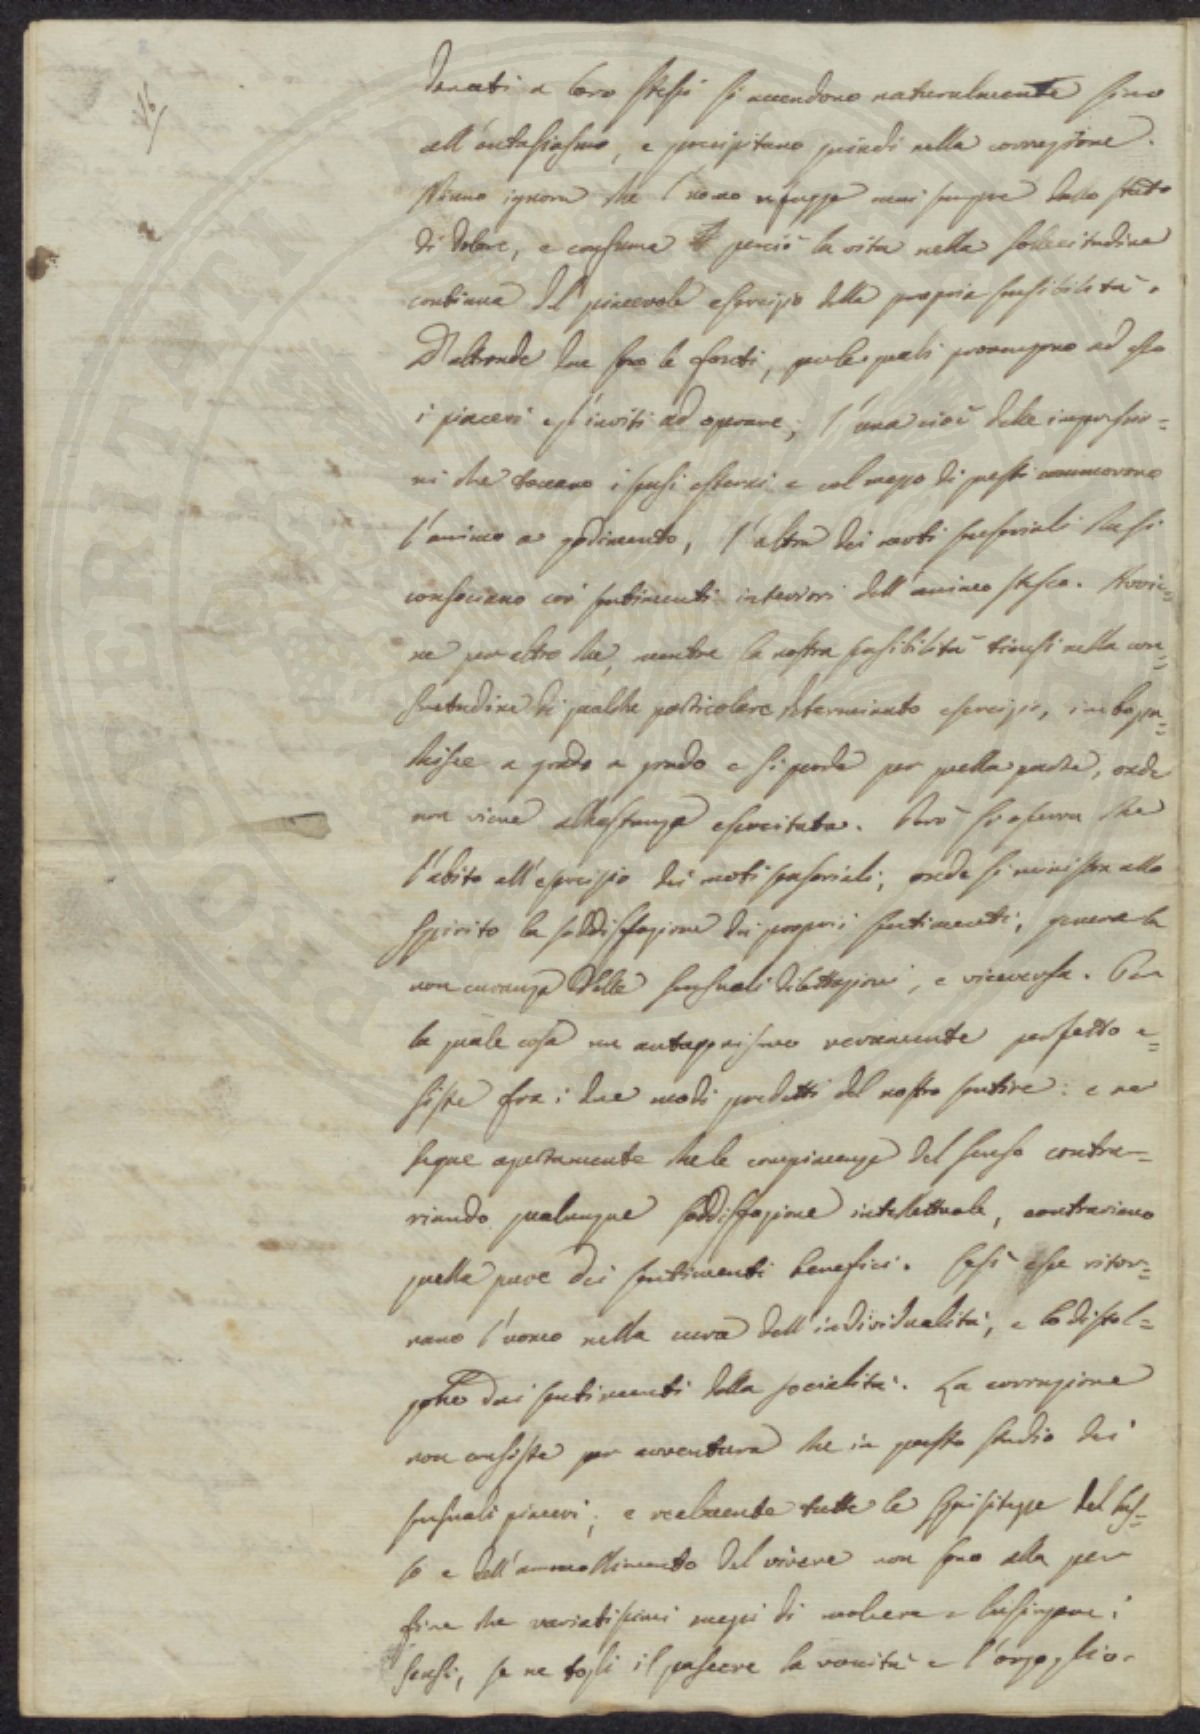 donati a loro stessi si accendono naturalmente sino
all'entusiasmo, e precipitano quindi nella corruzione.
Niuno ignora che l'uomo rifugge mai sempre dallo stato
di dolore, e consuma perciò la vita nella sollecitudine
continua del piacevole esercizio della propria sensibilità.
D'altronde due sono le fonti, per le quali provengono ad esso
i piaceri e gl'inviti ad operare; l'una cioè delle impressio=
ni che toccano i sensi esterni e col mezzo di questi commovono
l'animo a godimento, l'altra dei moti sensoriali che si
consociano coi sentimenti interiori dell'animo stesso. Avvie=
ne per altro che, mentre la nostra sensibilità tiensi nella con=
suetudine di qualche particolare determinato esercizio, intorpi=
disce a grado a grado e si perde per quella parte, onde
non viene abbastanza esercitata. Però si osserva che
l'abito all'esercizio dei moti sensoriali, onde si ministra allo
spirito la soddisfazione dei proprii sentimenti, genera la
non curanza delle sensuali dilettazioni, e viceversa. Per
la quale cosa un antagonismo veramente perfetto e=
siste fra i due modi predetti del nostro sentire: e ne
segue apertamente che le compiacenze del senso contra=
riando qualunque soddisfazione intellettuale, contrariano
quella pure dei sentimenti benefici. Così esse ritor=
nano l'uomo nella cura dell'individualità, e lo distol=
gono dai sentimenti della socialità. La corruzione
non consiste per avventura che in questo studio dei
sensuali piaceri; e realmente tutte le squisitezze del lus=
so e dell'ammollimento del vivere non sono alla per
fine che variatissimi mezzi di molcere e lusingare i
sensi, se ne togli il pascere la vanità e l'orgoglio.